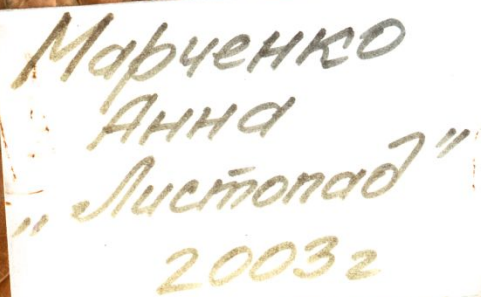 Марченко
Анна
„Листопад"
2003г